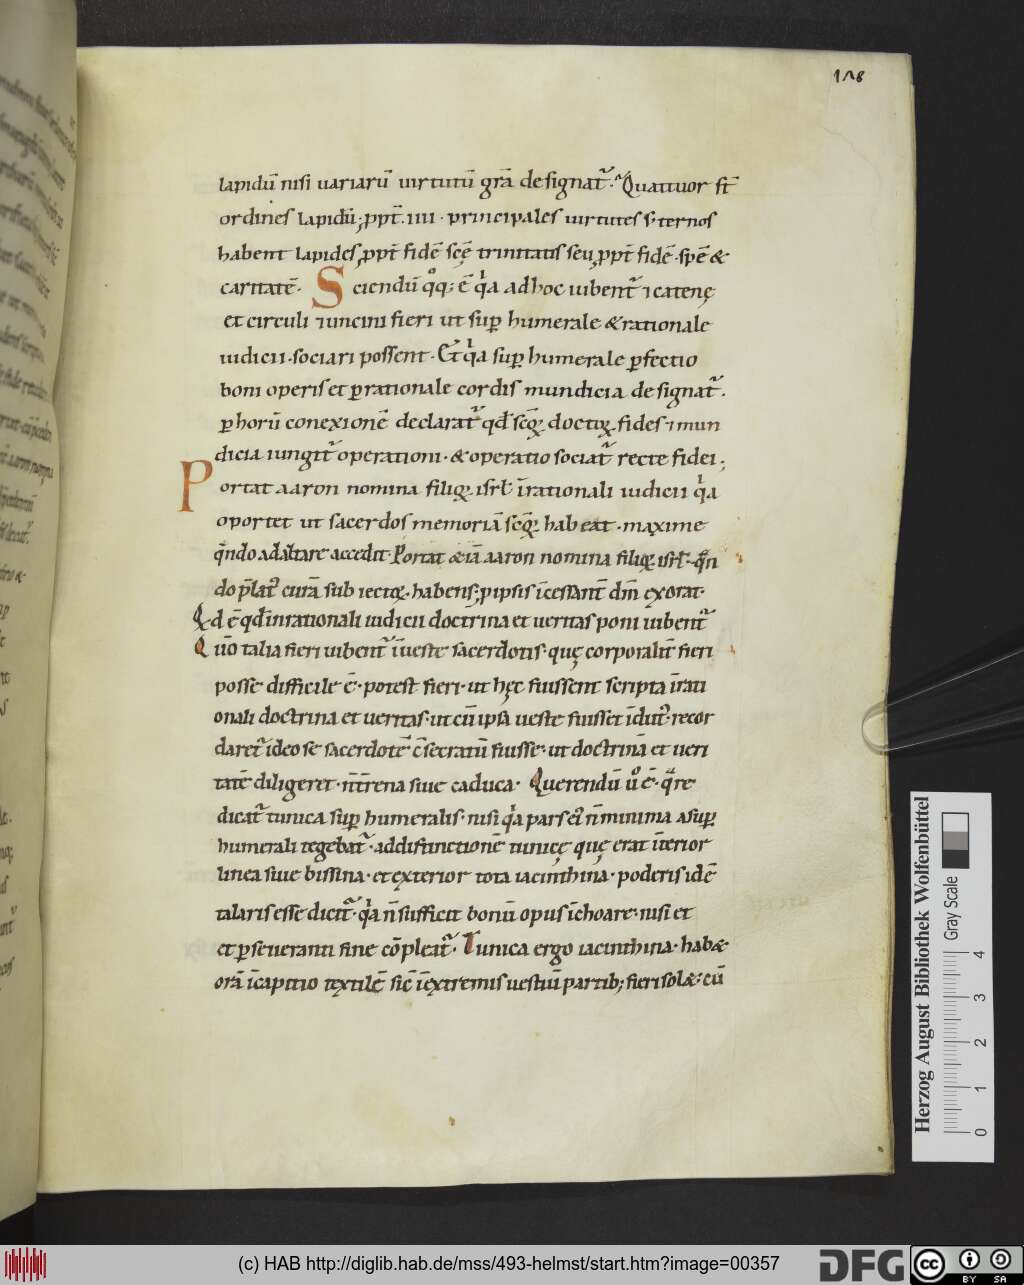 178
lapidū nisi uariarū uirtutū grā designat᷑. Quattuor st̄
ordines lapidū; ppt̄. iiii. principales uirtutes s. ternos
habent lapides, ppt̄ fidē scę̄ trinitatis seu, ppt̄ fidē. spē &
caritatē. Sciendū qͦq; ē qͥa ad hoc iubent᷑ ⁊ catenę
et circuli ⁊ uncini fieri ut sup̲ humerale & rationale
iudicii. sociari possent. Et qͥa sup̲ humerale p̲fectio
boni operis et p̲ rationale cordis mundicia designat᷑.
p̲ horū conexionē declarat᷑ qđ scōꝝ doctoꝝ. fides. ⁊ mun
dicia iungit᷑ operationi. & operatio sociat᷑ recte fidei;
Portat aaron nomina filioꝝ. isrł in̄ rationali iudicii qͥa
oportet ut sacerdos memoriā scōꝝ habeat. maxime
qn̄do ad altare accedit. Portat &iā aaron nomina filioꝝ isrł. qn̄
do p̄lat᷑ curā subiectoꝝ. habens; p ipsis īcessant̄ dn̄m exorat.
Qd ē qđ in rationali iudicii doctrina et ueritas poni iubent᷑
Quō talia fieri iubent᷑ ī ueste sacerdotis. quę corporalit̄ fieri
posse difficile ē. potest fieri. ut hęc fuissent scripta ī rati
onali doctrina et ueritas. ut cū ipsa ueste fuisset īdut᷒. recor
daret᷑ ideo se sacerdotē cōsecratū fuisse. ut doctrinā et ueri
tatē diligeret. n̄ t̄rena siue caduca. Querendū ūͦ ē. qͣre
dicat᷑ tunica sup̲ humeralis. nisi qͥa pars ei᷒ n̄ minima a sup̲
humerali tegebat᷑. ad distinctionē tunicę quę erat īterior
linea siue bissina. et exterior tota iacinthina. poderis idē
talaris esse dicit᷑. qͥa n̄ sufficit bonū opus īchoare. nisi et
et p̲seueranti fine cōpleat᷑. Tunica ergo iacinthina. hab&
orā ī capitio textilē sic̄ ī extremis uestiū partib; fieri sol&. cū
Herzog August Bibliothek Wolfenbüttel
Gray Scale
0 1 2 3 4
(c) HAB http://diglib.hab.de/mss/493-helmst/start.htm?image=00357
DFG
cc BY SA